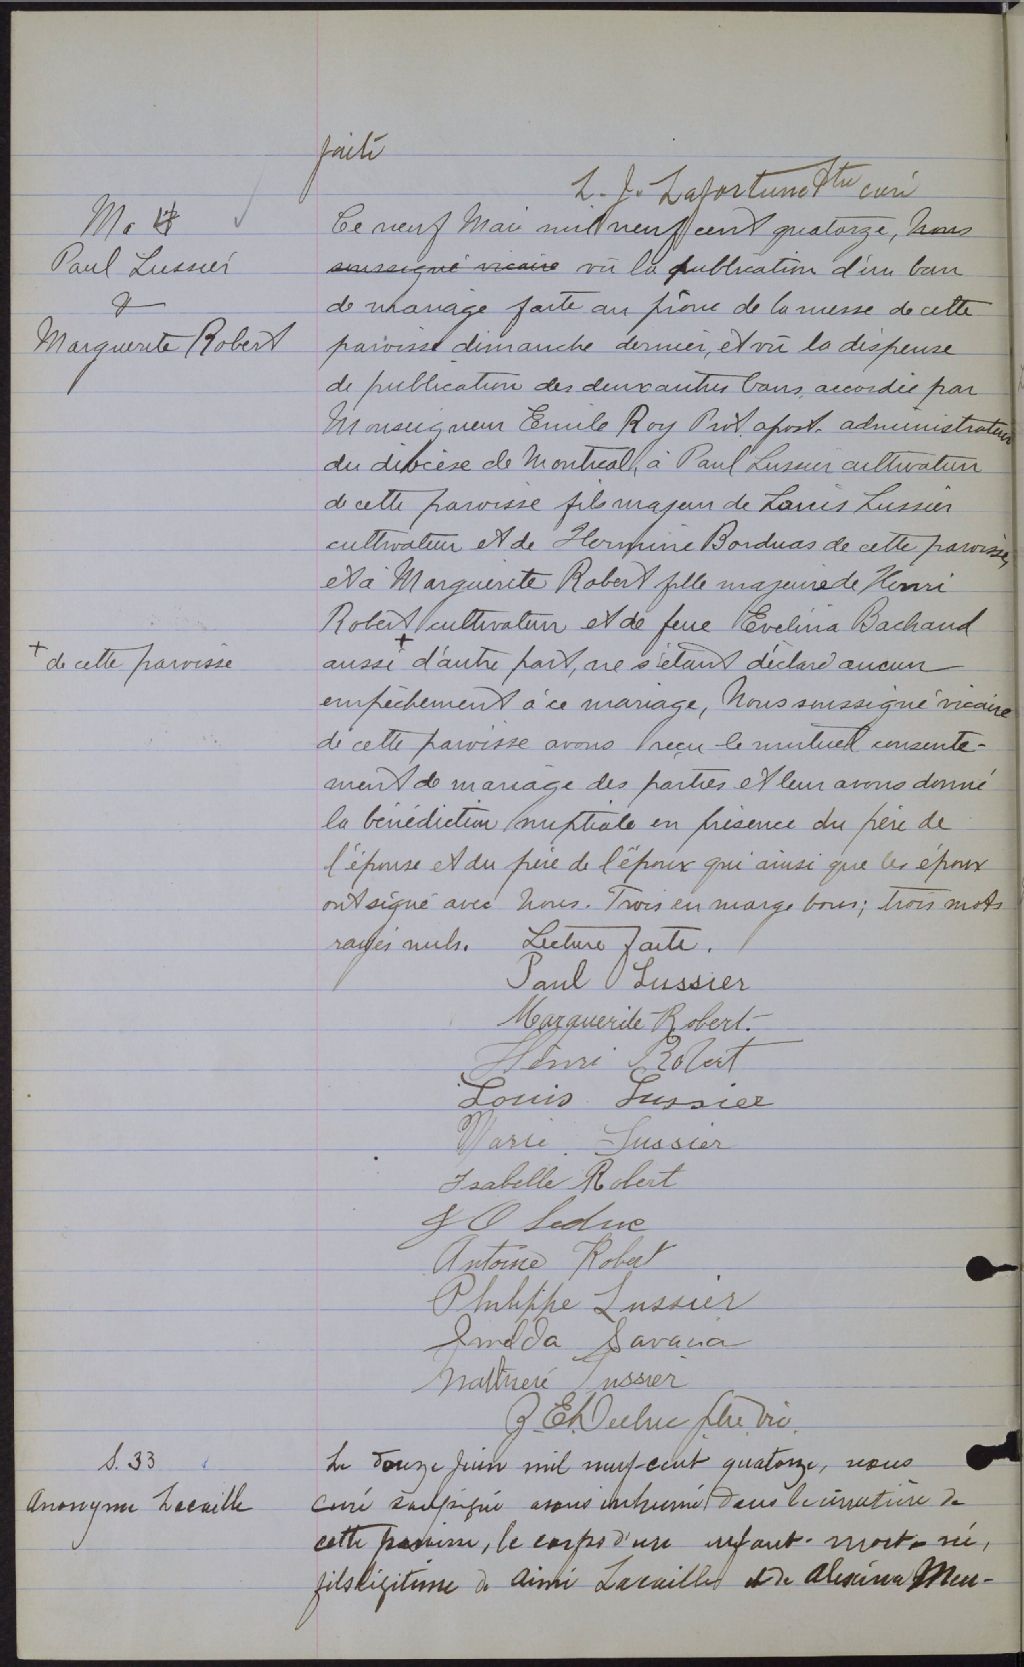 faite
L. J. Lafortune Ptre curé
M. 4
Paul Lussier
&
Marguerite Robert
Ce neuf Mai mil neuf cent quatorze, Nous
soussigné vicaire vû la publication d'un ban
de mariage faite au prône de la messe de cette
paroisse dimanche dernier, et vû la dispense
de publication des deux autres bans, accordée par
Monseigneur Emile Roy Prot. apost. administrateur
du diocèse de Montréal, à Paul Lussier cultivateur
de cette paroisse fils majeur de Louis Lussier
cultivateur et de Hermine Borduas de cette paroisse,
et à Marguerite Robert fille majeure de Henri
Robert cultivateur et de feue Evelina Bachand
+ de cette paroisse
aussi + d'autre part, ne s'étant déclaré aucun
empêchement à ce mariage, Nous soussigné vicaire
de cette paroisse avons reçu le mutuel consente-
ment de mariage des parties et leur avons donné
la bénédiction nuptiale en présence du père de
l'épouse et du père de l'époux qui ainsi que les époux
ont signé avec Nous. Trois en marge bons; trois mots
rayés nuls. Lecture faite.
Paul Lussier
Marguerite Robert.
Henri Robert
Louis Lussier
Marie Lussier
Isabelle Robert
J O Leduc
Antoine Robert
Philippe Lussier
Imelda Savaria
Lussier
ptre vic.
S. 33
Anonyme Lacaille
Le douze Juin mil neuf-cent quatorze, nous
curé soussigné avons inhumé dans le cimetière de
cette paroisse, le corps d'un enfant-mort-né,
fils légitime de Aimé Lacaille et de Alexina Meu-